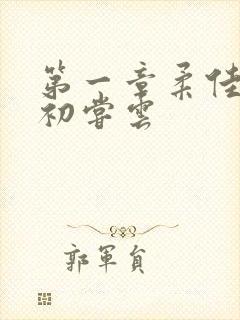 第一章柔佳
初尝云
郭军负